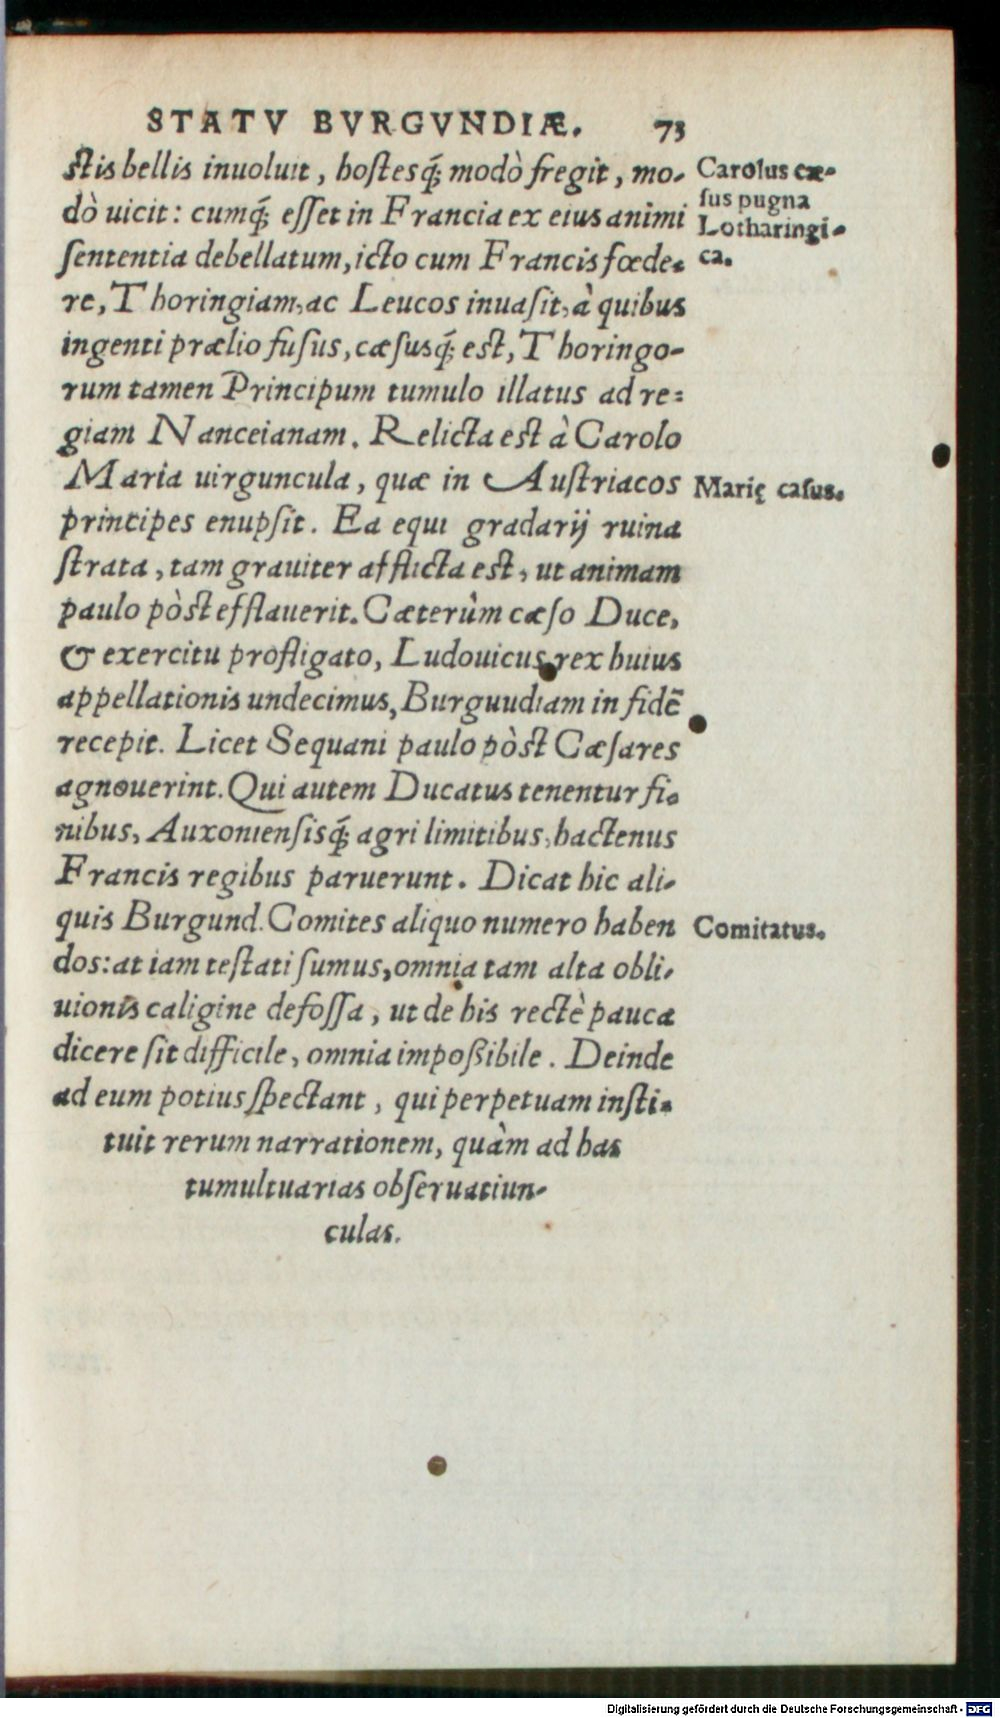 STATV BVRGVNDIÆ. 73
stis bellis inuoluit, hostesq́; modò fregit, mo-
dò uicit: cumq́; esset in Francia ex eius animi
sententia debellatum, icto cum Francis fœde-
re, Thoringiam, ac Leucos inuasit, à quibus
ingenti prælio fusus, cæsusq́; est, Thoringo-
rum tamen Principum tumulo illatus ad re-
giam Nanceianam. Relicta est à Carolo
Maria uirguncula, quæ in Austriacos
principes enupsit. Ea equi gradarij ruina
strata, tam grauiter afflicta est, ut animam
paulo pòst efflauerit. Cæterùm cæso Duce,
& exercitu profligato, Ludouicus rex huius
appellationis undecimus, Burguudiam in fidē
recepit. Licet Sequani paulo pòst Cæsares
agnouerint. Qui autem Ducatus tenentur fi-
nibus, Auxoniensisq́; agri limitibus, hactenus
Francis regibus paruerunt. Dicat hic ali-
quis Burgund. Comites aliquo numero haben
dos: at iam testati sumus, omnia tam alta obli-
uionis caligine defossa, ut de his rectè pauca
dicere sit difficile, omnia impoßibile. Deinde
ad eum potius spectant, qui perpetuam insti-
tuit rerum narrationem, quàm ad has
tumultuarias obseruatiun-
culas.
Carolus cæ-
sus pugna
Lotharingi-
ca.
Marię casus.
Comitatus.
Digitalisierung gefördert durch die Deutsche Forschungsgemeinschaft - DFG